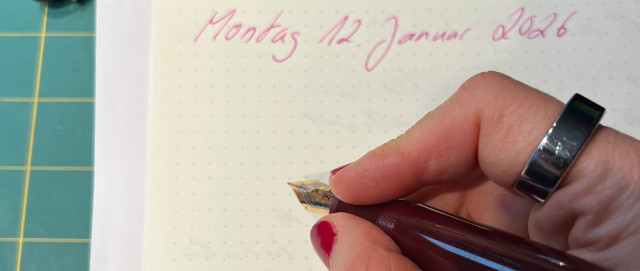 Montag 12. Januar 2026